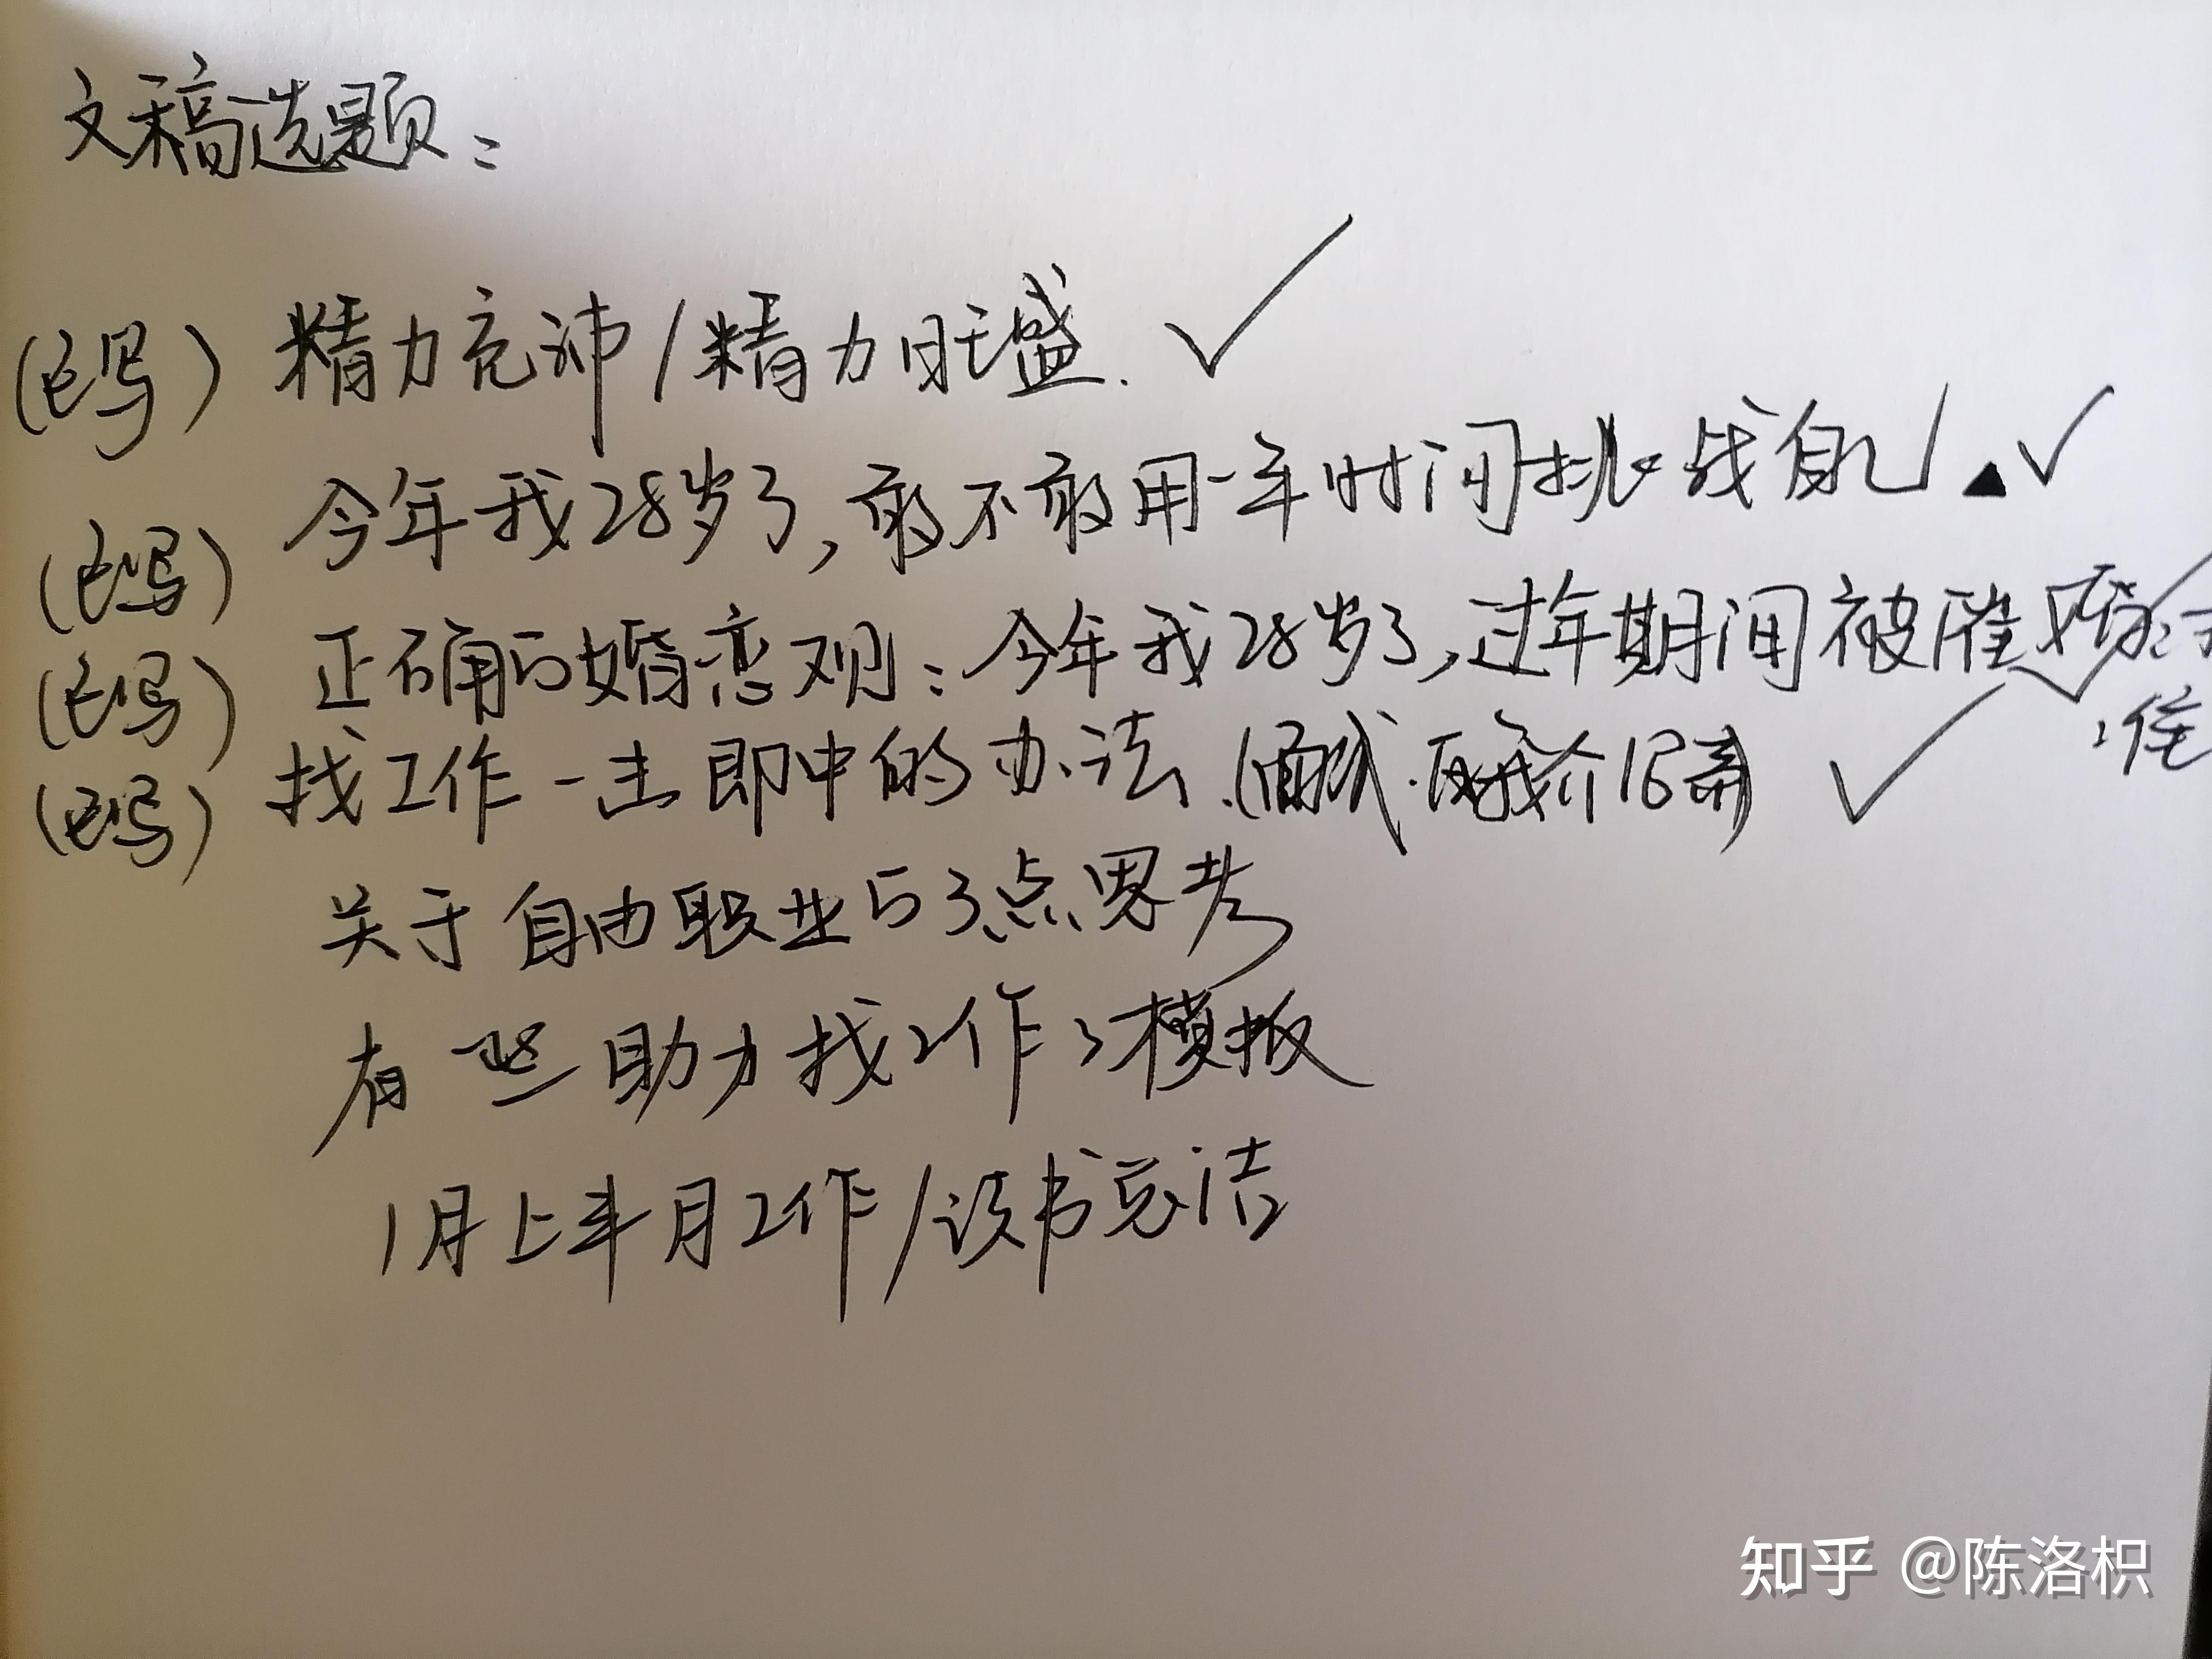 文稿选题:
(已写) 精力充沛/精力旺盛. ✓
(已写) 今年我28岁了,敢不敢用一年时间挑战自己 ▲✓
(已写) 正确的婚恋观:今年我28岁了,过年期间被催婚
(已写) 找工作一击即中的办法.(面试.自我介 ✓
关于自由职业的3点思考
有些助力找工作 模板
1月上半月工作/读书总结
知乎 @陈洛枳